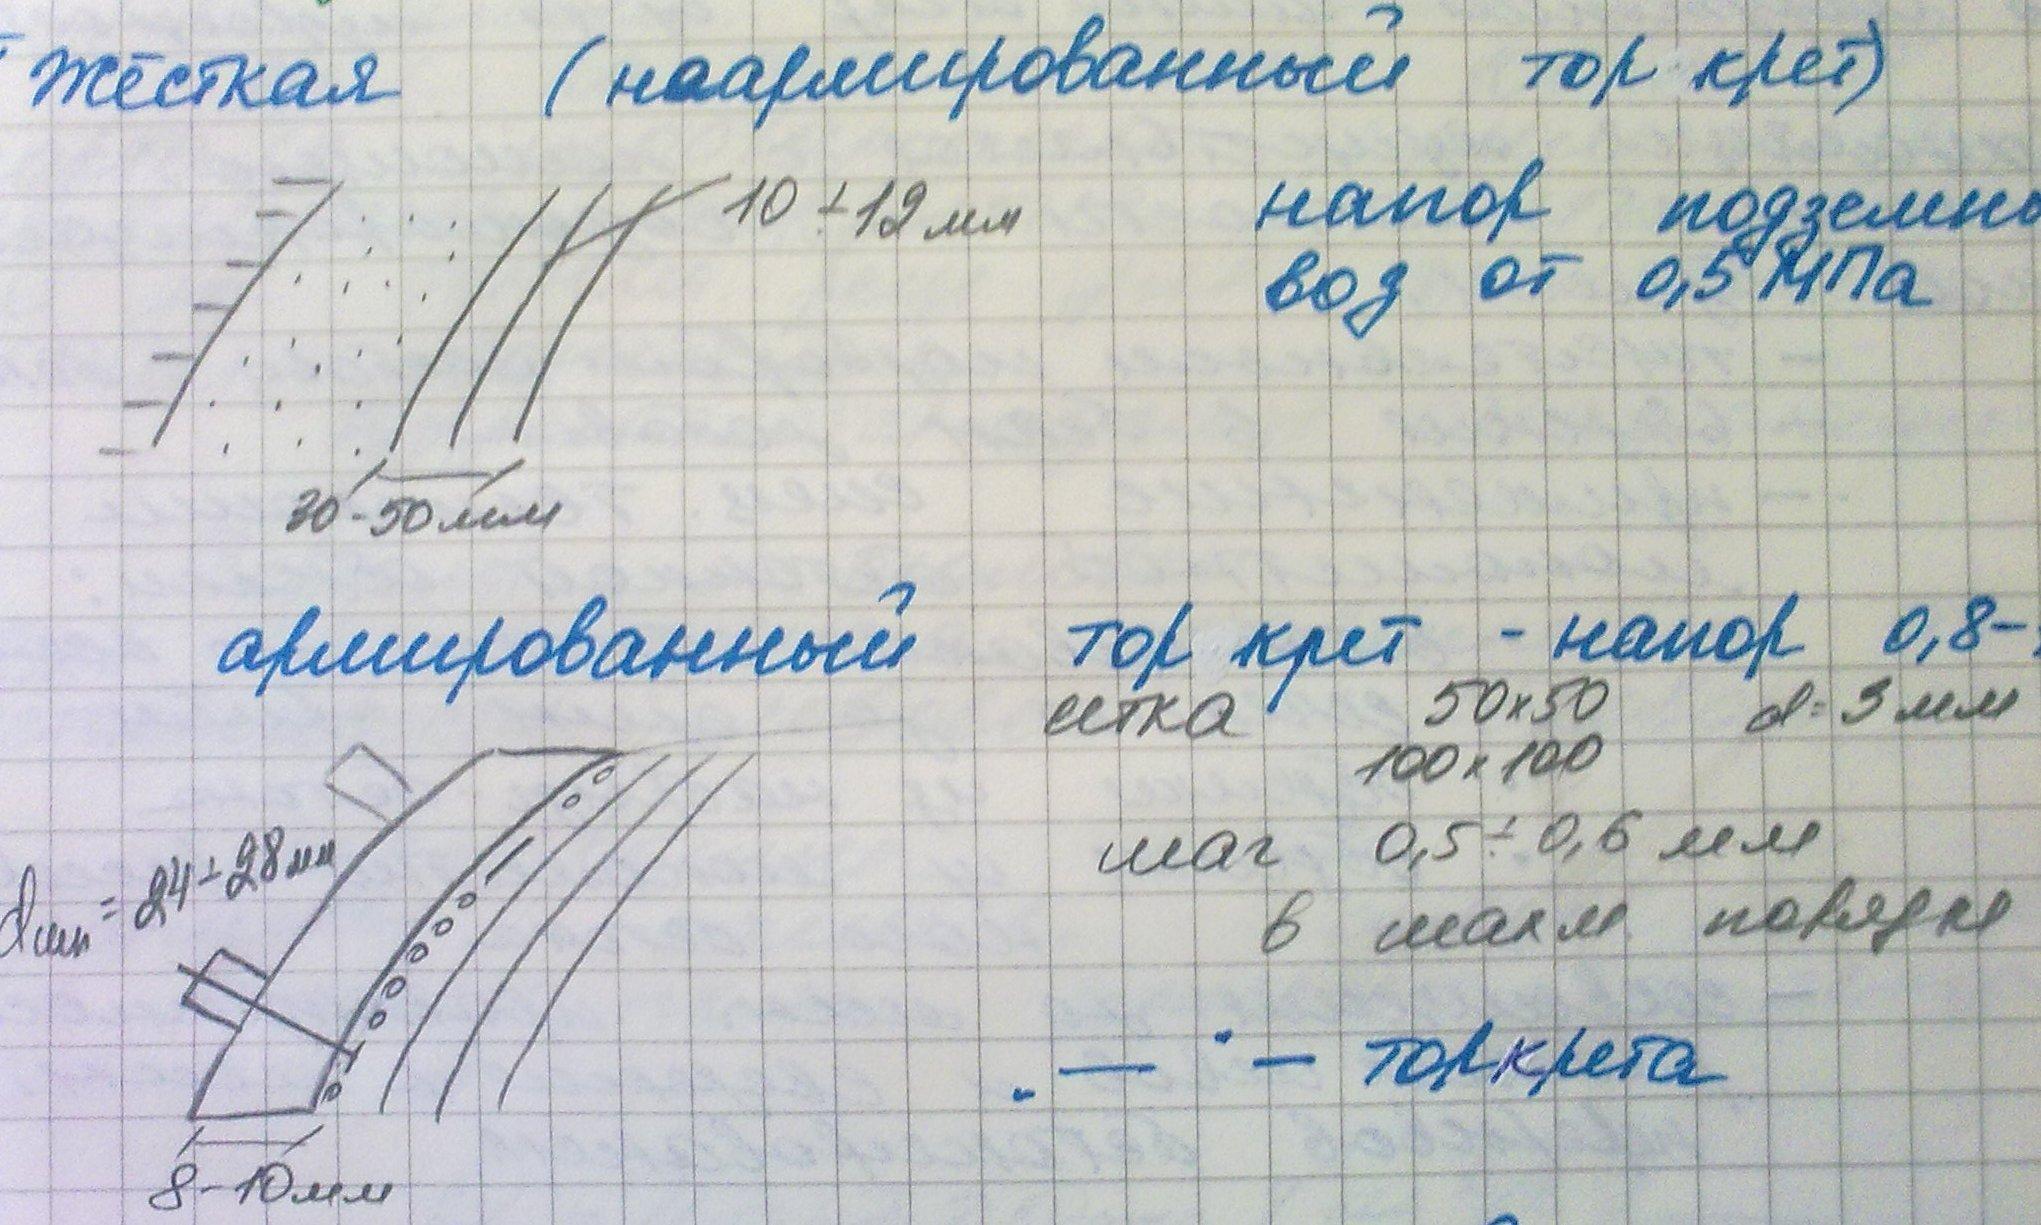 Жёсткая (наармированный торкрет)
10 ÷ 12 мм
напор подземны
вод от 0,5 МПа
30-50 мм
армированный торкрет - напор 0,8-
сетка 50х50 d=3 мм
100х100
шаг 0,5 ÷ 0,6 мм
в шахм порядке
dшп = 24 ÷ 28 мм
торкрета
8-10мм